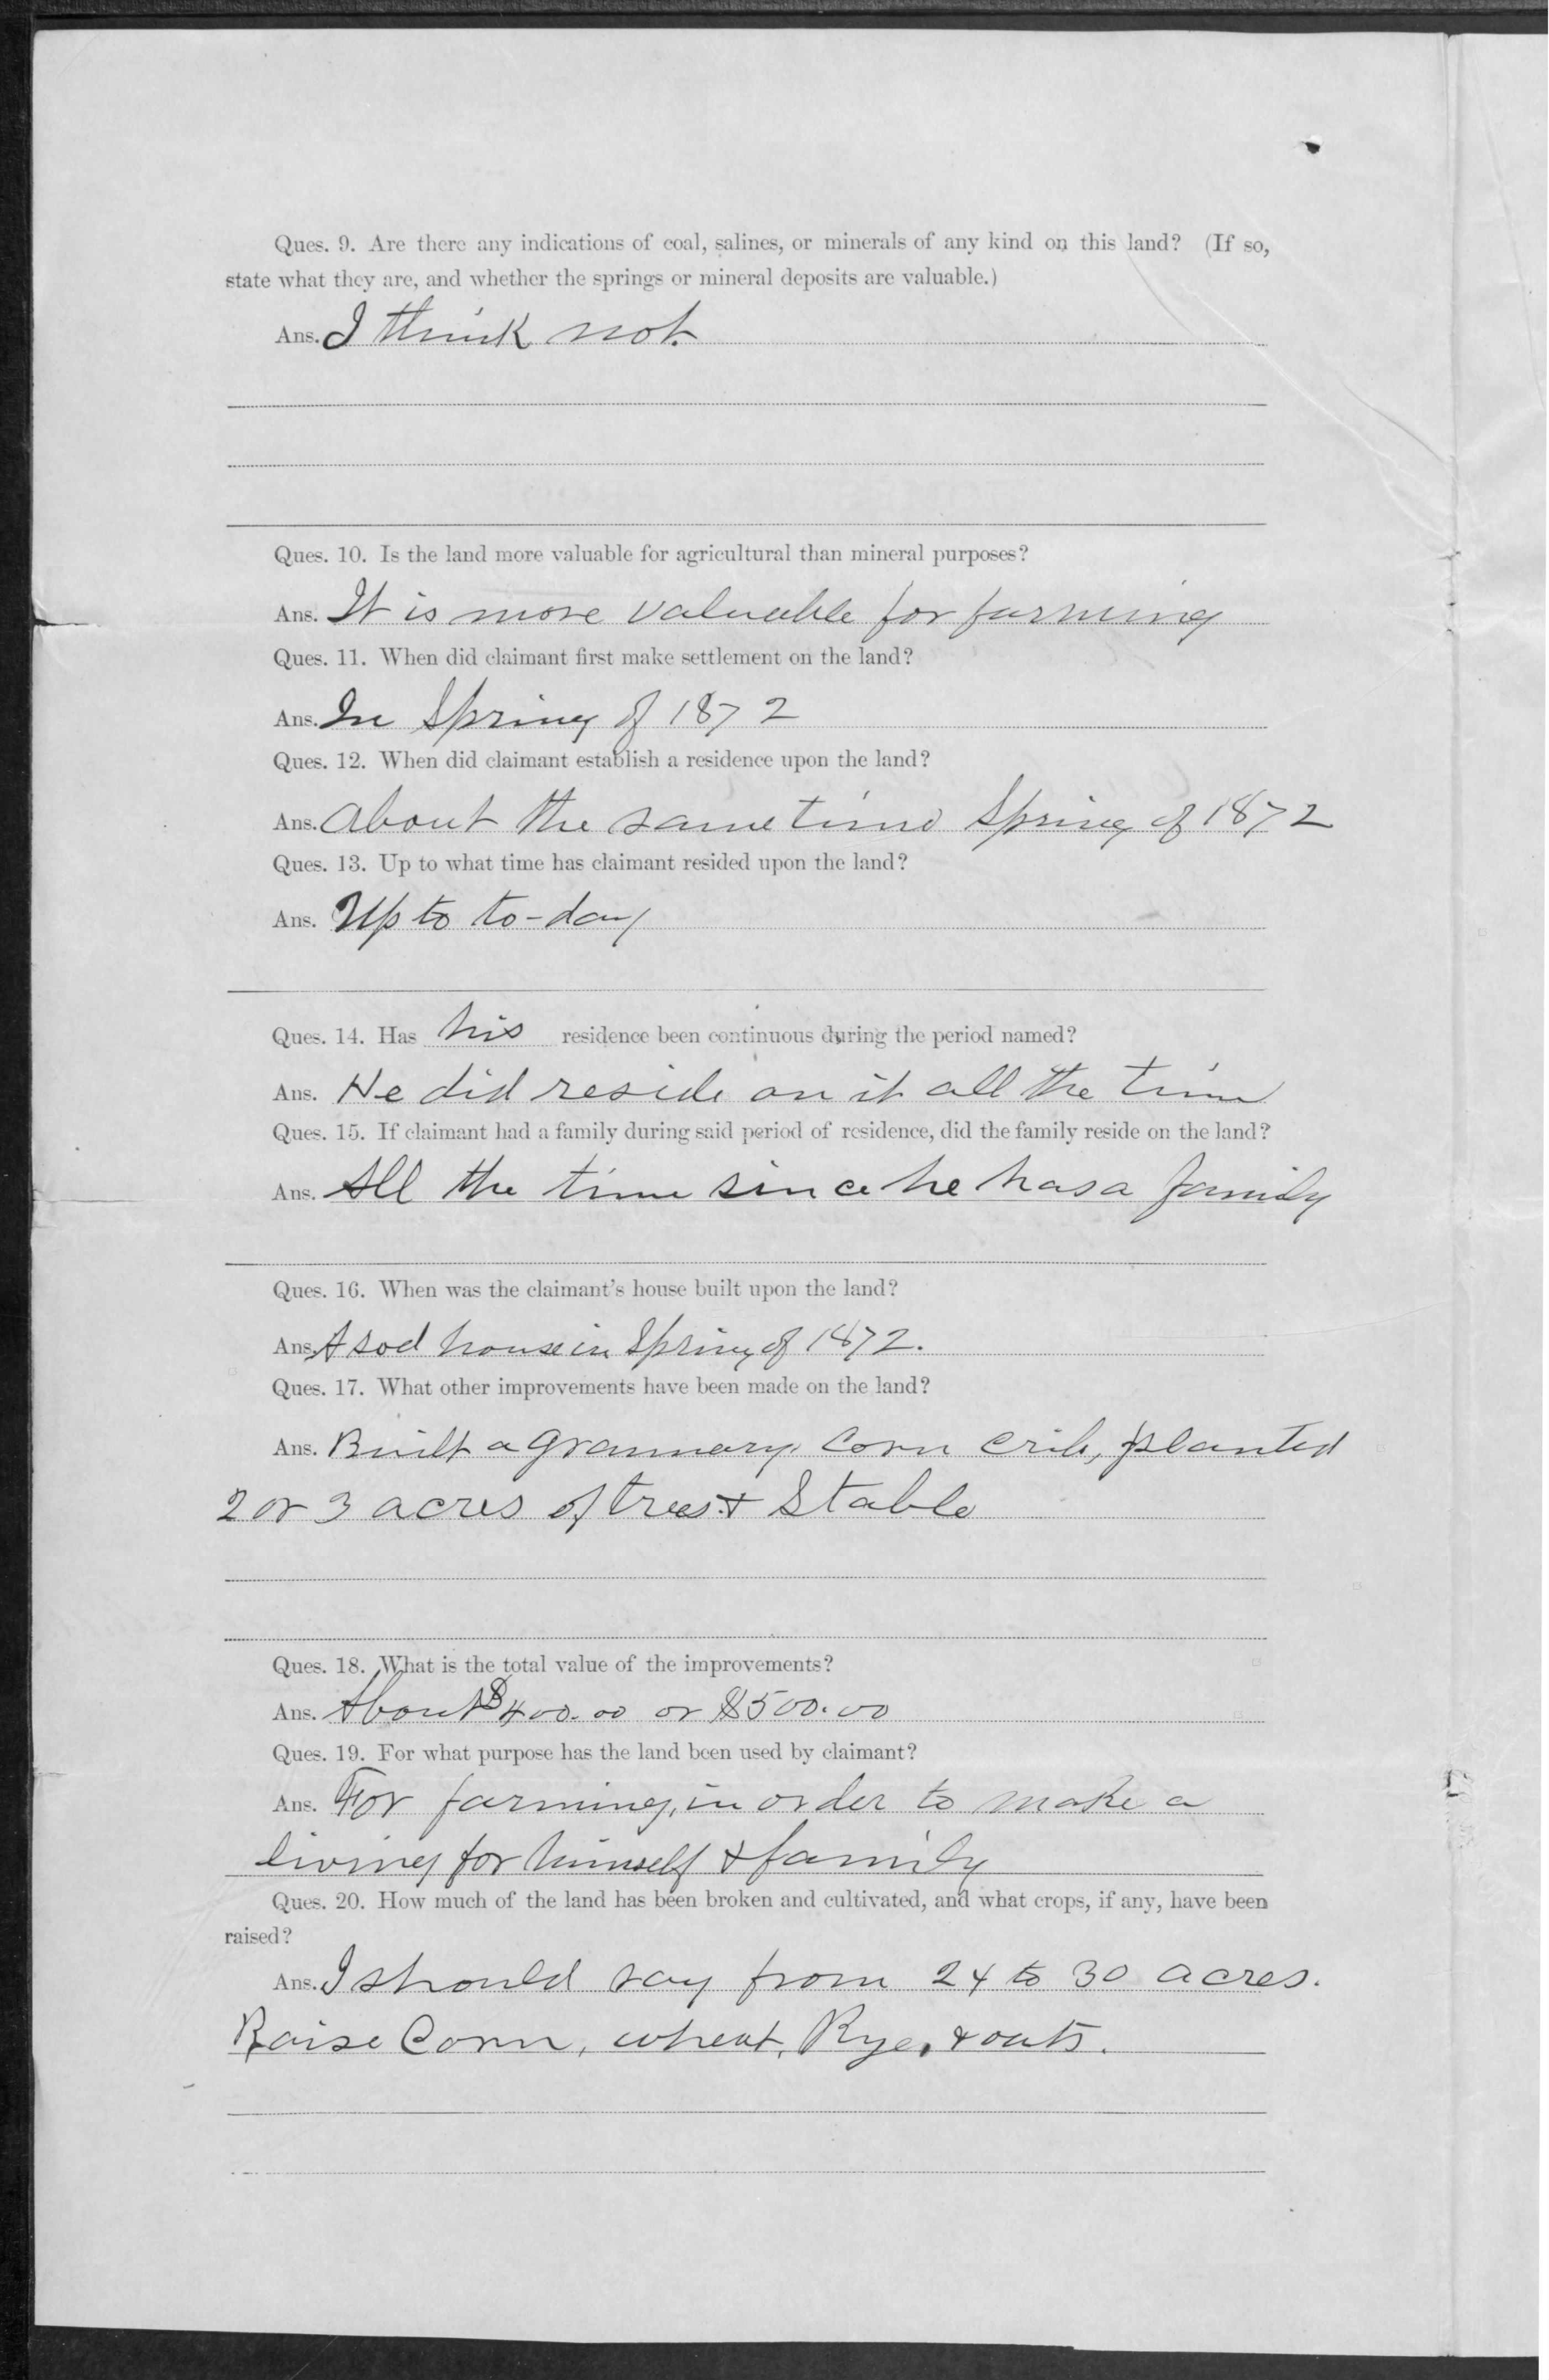 Ques. 9. Are there any indications of coal, salines, or minerals of any kind on this land? (If so,
state what they are, and whether the springs or mineral deposits are valuable.)
Ans. I think not.
Ques. 10. Is the land more valuable for agricultural than mineral purposes?
Ans. It is more valuable for farming
Ques. 11. When did claimant first make settlement on the land?
Ans. In Spring of 1872
Ques. 12. When did claimant establish a residence upon the land?
Ans. About the same time Spring of 1872
Ques. 13. Up to what time has claimant resided upon the land?
Ans. Up to to-day
Ques. 14. Has his residence been continuous during the period named?
Ans. He did reside on it all the time
Ques. 15. If claimant had a family during said period of residence, did the family reside on the land?
Ans. All the time since he has a family
Ques. 16. When was the claimant's house built upon the land?
Ans. A sod house in Spring of 1872.
Ques. 17. What other improvements have been made on the land?
Ans. Built a Grannary, Corn Crib, planted
2 or 3 acres of trees & Stable
Ques. 18. What is the total value of the improvements?
Ans. About $400.00 or $500.00
Ques. 19. For what purpose has the land been used by claimant?
Ans. For farming, in order to make a
living for himself & family
Ques. 20. How much of the land has been broken and cultivated, and what crops, if any, have been
raised?
Ans. I should say from 24 to 30 acres.
Raise Corn, wheat, Rye, & oats.